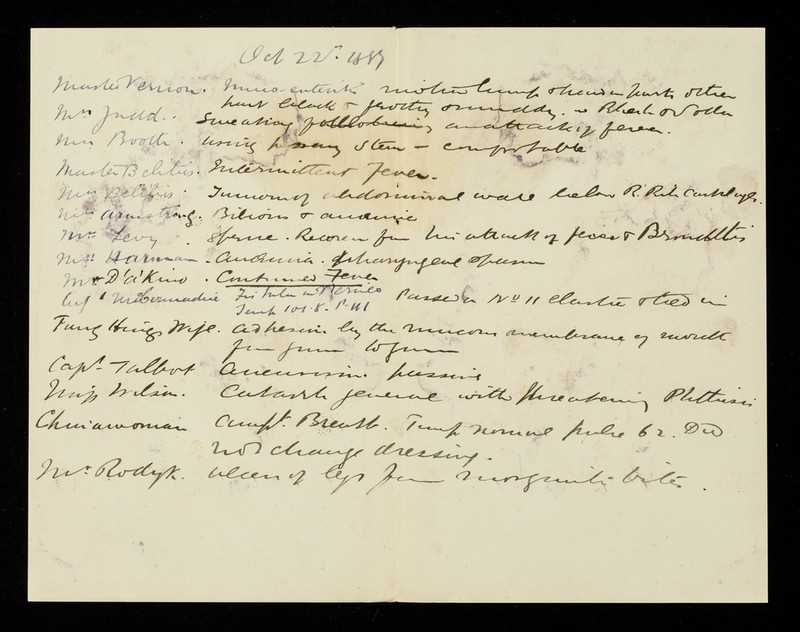 Oct 22nd. 1887
Master Vernon. Muco-enteritis motion lump & hard in parts other
part black & frothy & muddy. w Rhub & Soda
Mrs Judd. Sweating following an attack of fever.
Mrs Booth. using pessary stem - comfortable
Master Belilis. Intermittent Fever.
Mrs Belilis. Tumour of abdominal wall below R. Rib Cartilages.
Mrs Armstrong. Bilious & anaemic
Mr Levy. Sprue. Recover from his attack of fever & Bronchitis
Mrs Harman. Anaemia. pharyngeal spasm
Mr D'Akino. Continued Fever
Temp 101.8. P.111
Passed a No 11 Elastic & tied in
Fung Hings Wife. adhesion by the mucous membrane of mouth
from gum to gum
Capt. Talbot Aneurism passive
Miss Wilson. Catarrh general with threatening Phthisis
Chinawoman Ampt. Breast. Temp normal pulse 62. Did
not change dressing.
Mr. Rodyk. ulcer of legs from mosquito bites.